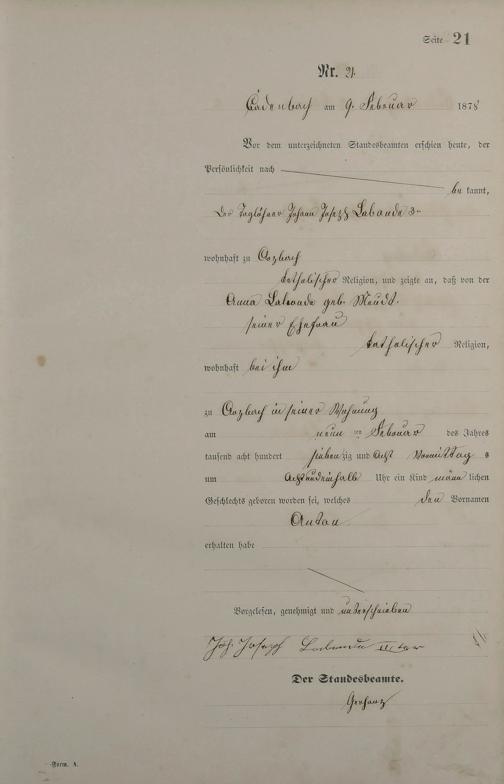 Seite 21
Nr. 21.
Cadenbach am 9. Februar 1878
Vor dem unterzeichneten Standesbeamten erschien heute, der
Persönlichkeit nach
be kannt,
der Taglöhner Johann Joseph Labonde 3r
wohnhaft zu Arzbach
katholischer Religion, und zeigte an, daß von der
Anna Labonde geb. Meudt
seiner Ehefrau
katholischer Religion,
wohnhaft bei ihm
zu Arzbach in seiner Wohnung
am neun ten Februar des Jahres
tausend acht hundert siebenzig und acht Vormittag s
um acht und einhalb Uhr ein Kind männ lichen
Geschlechts geboren worden sei, welches den Vornamen
Anton
erhalten habe
Vorgelesen, genehmigt und unterschrieben
Joh. Joseph Labonde IIIter
Der Standesbeamte.
Form. A.